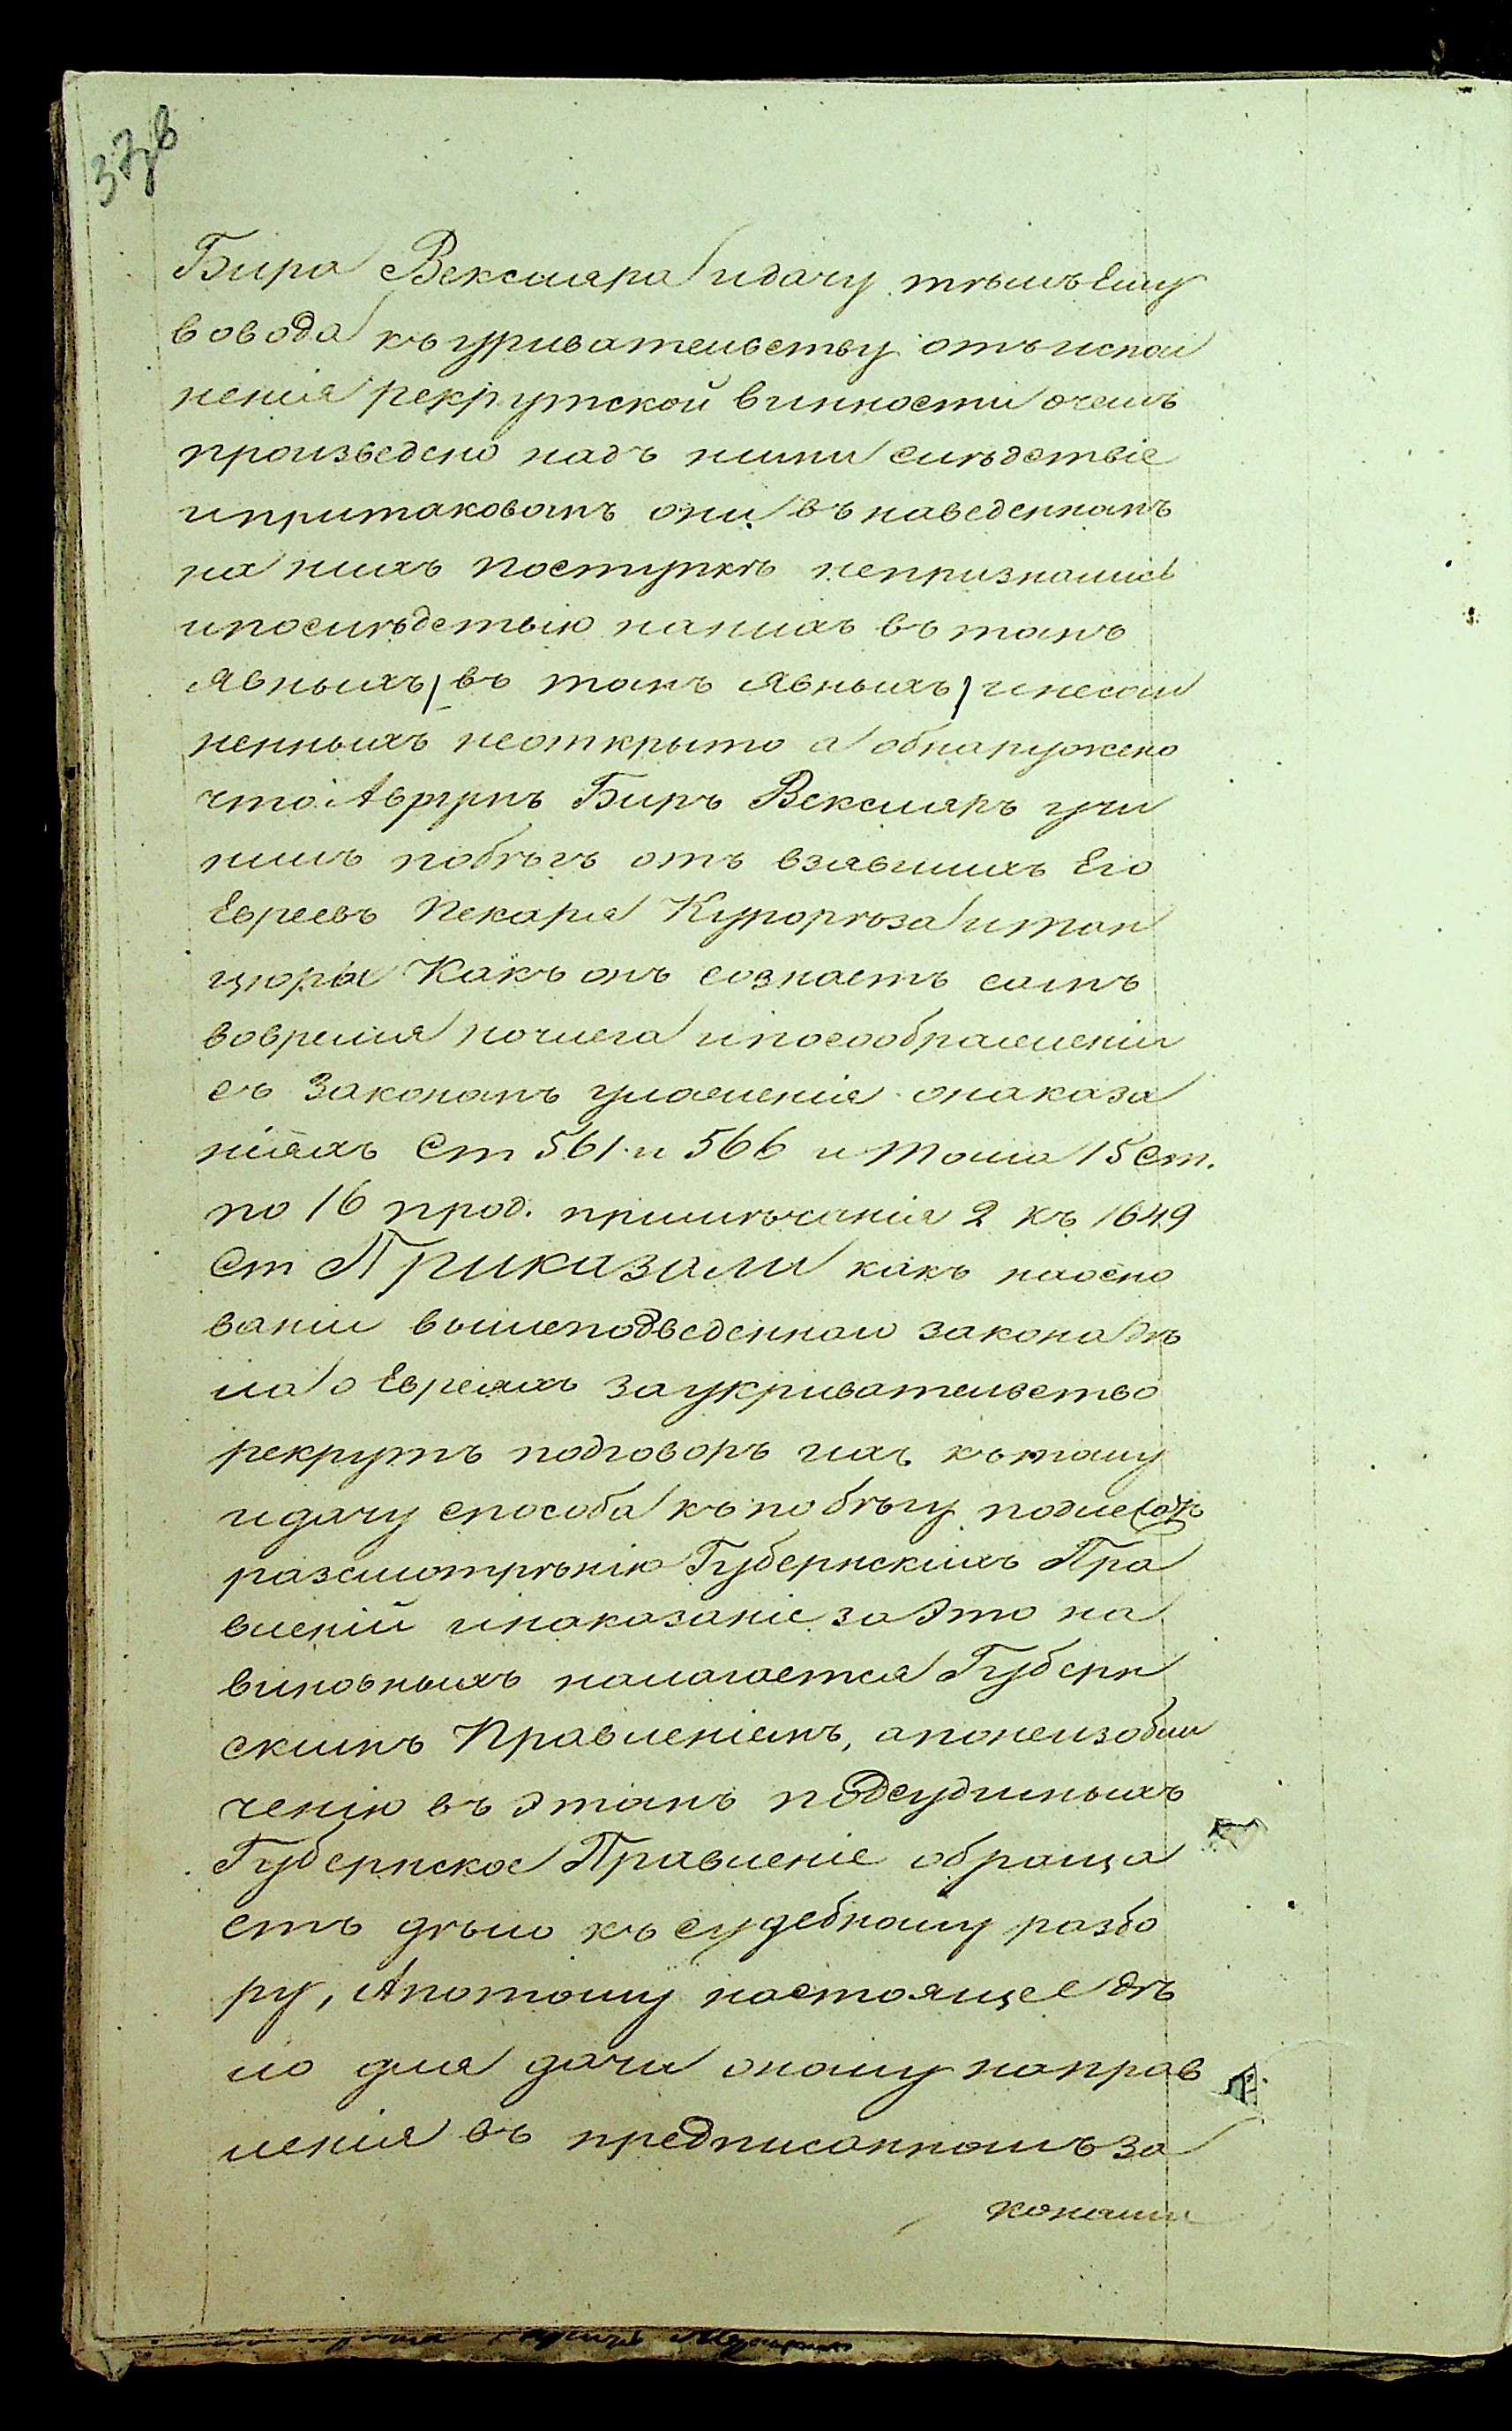 378
Бира Векслера идачу тѣмъ Ему
вовода къ укривательству отъ испол
ненія рекрутской винности очемъ
произведено надъ ними слѣдствіе
ипритаковомъ они въ наведенномъ
на нихъ поступкѣ непризнались
ипослѣдствію нанихъ въ томъ
явныхъ (въ томъ явныхъ) инесом
ненныхъ неоткрыто а обнаружено
что Аврумъ Биръ Векслеръ учи
нилъ побѣгъ отъ взявшихъ Его
Евреевъ Пекаря Курорѣза и Ман
цюры Какъ онъ сознаетъ самъ
вовремя ночлега ипосоображеніи
съ Закономъ уложенія онаказа
ніяхъ Ст 561 и 566 и Тома 15 Ст.
по 16 прод. примѣчанія 2 къ 1649
Ст Приказали какъ наосно
ваніи вышеподведенной закона дѣ
ла о Евреяхъ заукривательство
рекрутъ подговоръ ихъ кътому
идачу способа къ побѣгу подлежатъ
разсмотрѣнію Губернскихъ Пра
вленій инаказаніе за это на
виновныхъ налагается Губерн
скимъ Правленіемъ, апонеизобли
ченію въ этомъ подсудимыхъ
Губернское Правленіе обраща
етъ дѣло къ судебному разбо
ру, Апотому настоящее дѣ
ло для дачи оному направ
ленія въ предписанномъ за
конами